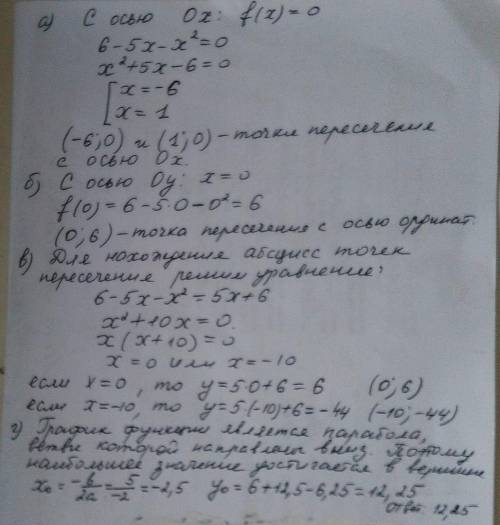 а) С осью Ox: f(x)=0
6-5x-x²=0
x²+5x-6=0
[x=-6
x=1
(-6;0) и (1;0) - точки пересечения
с осью Ox.
б) С осью Oy: x=0
f(0)=6-5·0-0²=6
(0;6) - точка пересечения с осью ординат.
в) Для нахождения абсцисс точек
пересечения решим уравнение:
6-5x-x²=5x+6
x²+10x=0.
x(x+10)=0
x=0 или x=-10
если x=0, то y=5·0+6=6 (0;6)
если x=-10, то y=5·(-10)+6=-44 (-10;-44)
г) График функции является парабола,
ветви которой направлены вниз. Поэтому
наибольшее значение достигается в вершине
x₀=-b/2a=5/-2=-2,5 y₀=6+12,5-6,25=12,25
Ответ: 12,25